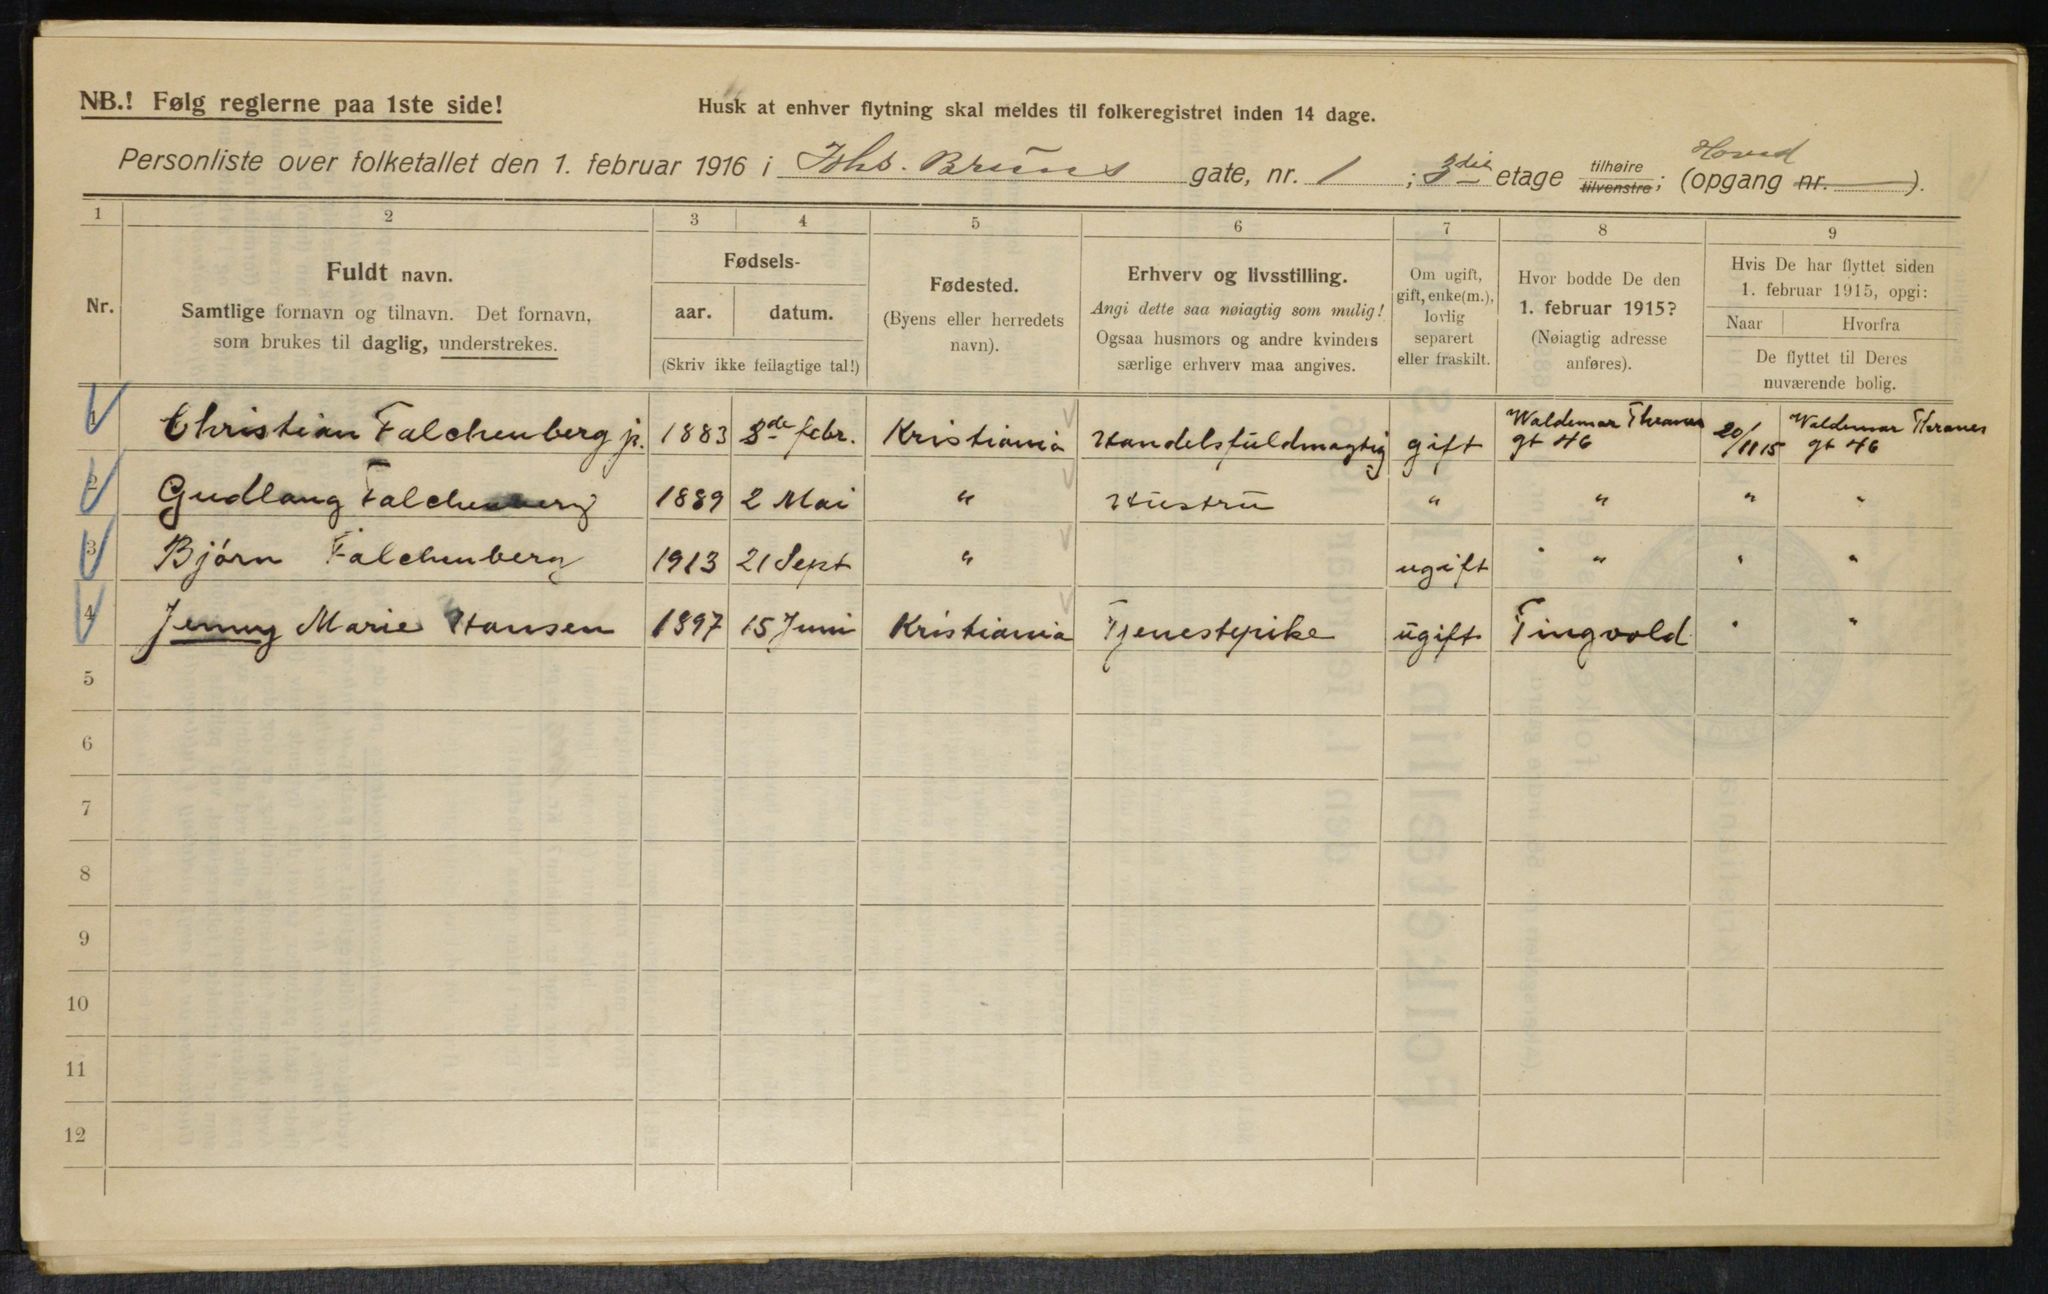 NB.! Følg reglerne paa 1ste side!
Husk at enhver flytning skal meldes til folkeregistret inden 14 dage.
Personliste over folketallet den 1. februar 1916 i Jhs. Bruns gate, nr. 1 ; 3die etage tilhøire tilvenstre; (Hoved opgang nr. ).
1 2 3 4 5 6 7 8 9
Nr.
Fuldt navn.
Samtlige fornavn og tilnavn. Det fornavn,
som brukes til daglig, understrekes.
Fødsels-
aar. datum.
(Skriv ikke feilagtige tal!)
Fødested.
(Byens eller herredets
navn).
Erhverv og livsstilling.
Angi dette saa nøiagtig som mulig!
Ogsaa husmors og andre kvinders
særlige erhverv maa angives.
Om ugift,
gift, enke(m.),
lovlig
separert
eller fraskilt.
Hvor bodde De den
1. februar 1915?
(Nøiagtig adresse
anføres).
Hvis De har flyttet siden
1. februar 1915, opgi:
Naar Hvorfra
De flyttet til Deres
nuværende bolig.
1 Christian Falchenberg jr. 1883 8de febr. Kristiania Handelsfuldmagtig gift Waldemar Thranes gt 46 20/11 15 Waldemar Theranes gt 46
2 Gudlaug Falchenberg 1889 2 Mai " Hustru " " " "
3 Bjórn Falchenberg 1913 21 Sept " ugift " " "
4 Jenny Marie Hansen 1897 15 Juni Kristiania Tjenestepike ugift Tingvold " "
5
6
7
8
9
10
11
12